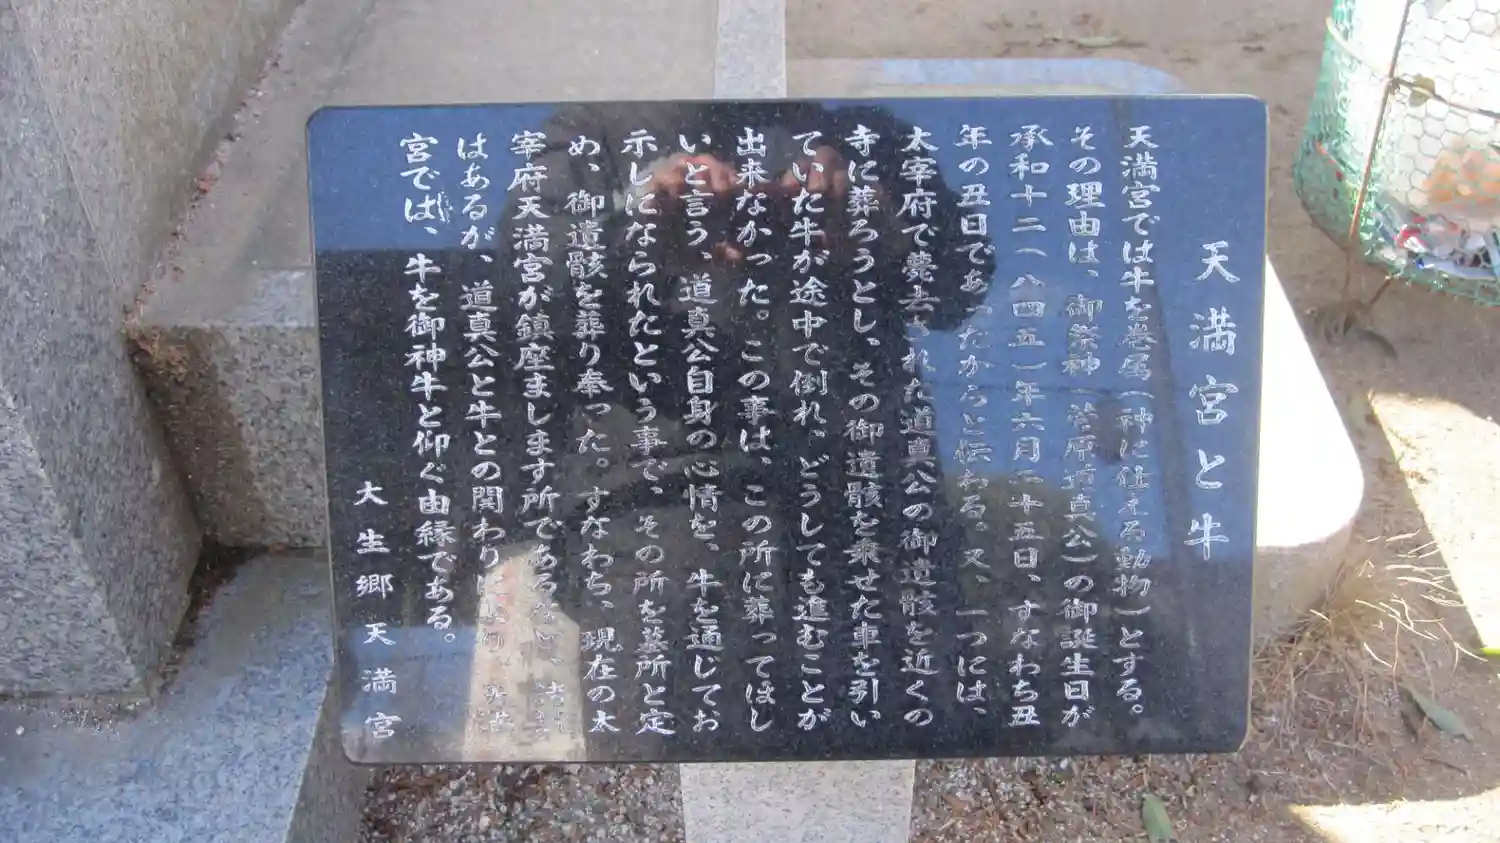 天満宮と牛
天満宮では牛を巻属(神に仕える動物)とする。
その理由は、御祭神(菅原道真公)の御誕生日が
承和十二(八四五)年六月二十五日、すなわち丑
年の丑日であったからと伝わる。又、一つには、
太宰府で薨去された道真公の御遺骸を近くの
寺に葬ろうとし、その御遺骸を乗せた車を引い
ていた牛が途中で倒れ、どうしても進むことが
出来なかった。この事は、この所に葬ってほし
いと言う、道真公自身の心情を、牛を通じてお
示しになられたという事で、その所を墓所と定
め、御遺骸を葬り奉った。すなわち、現在の太
宰府天満宮が鎮座まします所である。
はあるが、道真公と牛との関わりにより、天満
宮では、牛を御神牛と仰ぐ由縁である。
大生郷天満宮